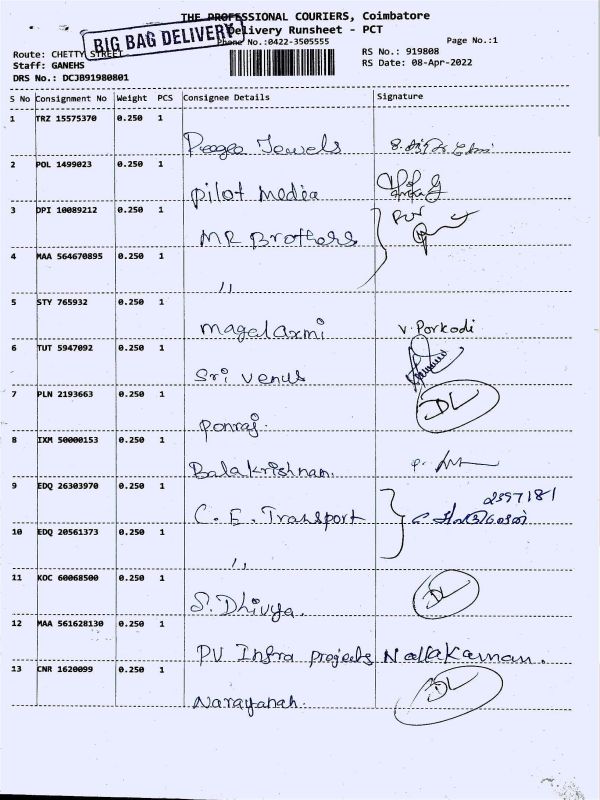 THE PROFESSIONAL COURIERS, Coimbatore
BIG BAG DELIVERY
Delivery Runsheet - PCT
Phone No.:0422-3505555
Page No.:1
Route: CHETTY STREET
RS No.: 919808
Staff: GANEHS
RS Date: 08-Apr-2022
DRS No.: DCJB91980801
S No Consignment No Weight PCS Consignee Details Signature
1 TRZ 15575370 0.250 1
Jewels
2 POL 1499023 0.250 1
Pilot Media
3 DPI 10089212 0.250 1
MR Brothers
4 MAA 564670895 0.250 1
,,
5 STY 765932 0.250 1
Magalaxmi V. Porkodi
6 TUT 5947092 0.250 1
Sri Venus
7 PLN 2193663 0.250 1
Ponraj. DL
8 IXM 50000153 0.250 1
Balakrishnan.
9 EDQ 26303970 0.250 1
2397181
C. E. Transport
10 EDQ 20561373 0.250 1
,,
11 KOC 60068500 0.250 1
S. Dhivya. DL
12 MAA 561628130 0.250 1
PV Infra projects Nallakannan.
13 CNR 1620099 0.250 1
Narayanan. DL